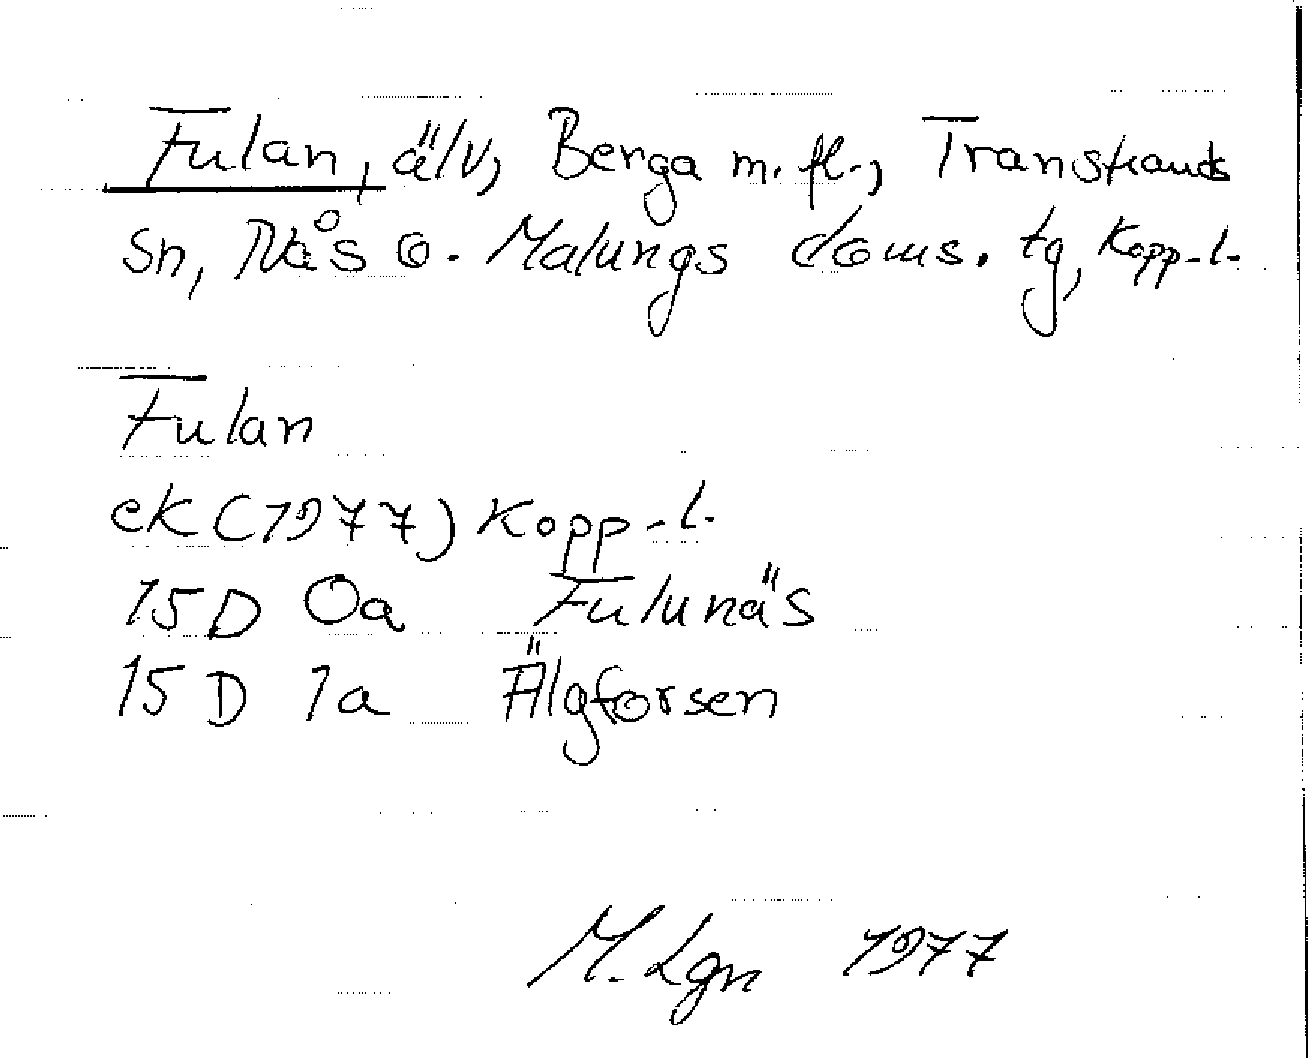 Fulan, älv, Berga m. fl., Transtrands
sn, Nås o. Malungs doms. tg, Kopp-l.
Fulan
ek (1977) Kopp-l.
15D 0a Fulunäs
15D 1a Älgforsen
M. Lgn 1977